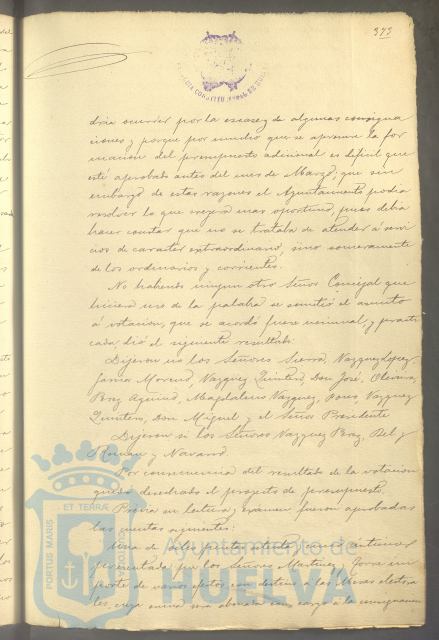 373
dria ocurrir por la escasez de algunas consigna
ciones y porque por mucho que se apresure la for
macion del presupuesto adicional es dificil que
esté aprobado antes del mes de Marzo, que sin
embargo de estas razones el Ayuntamiento podia
resolver lo que creyera mas oportuno, pues debia
hacer constar que no se trataba de atender á servi
cios de caracter extraordinario, sino someramente
de los ordinarios y corrientes.
No habiendo ningun otro Señor Concejal que
hiciera uso de la palabra se sometió el asunto
á votacion, que se acordó fuese nominal, y practi
cada, dió el siguiente resultado:
Dijeron no los Señores Sierra, Vazquez Lopez,
Garcia Moreno, Vazquez Quintero, Don José, Oliveira,
Perez Aquino, Magdaleno Vazquez, Pons, Vazquez
Quintero, Don Miguel y el Señor Presidente
Dijeron si los Señores Vazquez Perez, Bel y
Roman y Navarro.
Por consecuencia del resultado de la votacion
quedó desechado el proyecto de presupuesto.
Previa su lectura y examen fueron aprobadas
las cuentas siguientes:
Una de pesetas centimos
presentada por los Señores Martinez y im
porte de varios efectos con destino á las Mesas electora
les, cuya suma sea abonada con cargo á la consignacion
PORTUS MARIS ET TERRAE CUSTODIA
Ayuntamiento de
HUELVA